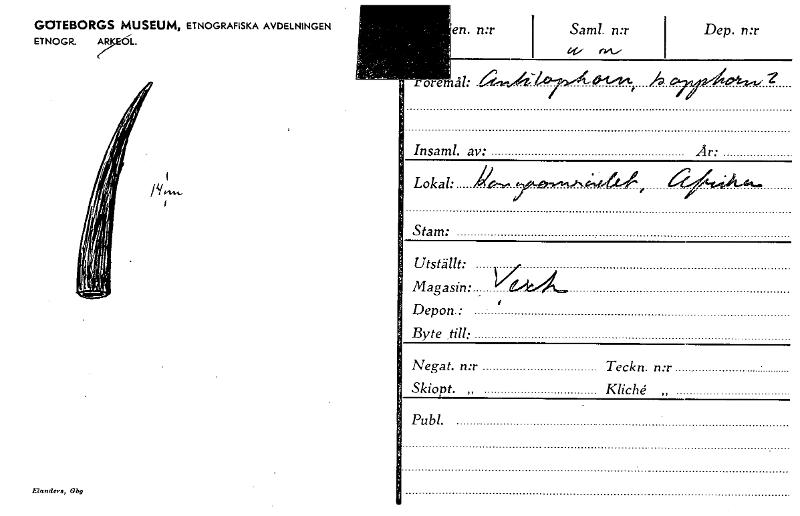 GÖTEBORGS MUSEUM, ETNOGRAFISKA AVDELNINGEN
ETNOGR. ARKEOL.
14 cm
Elanders, Gbg
en. n:r Saml. n:r Dep. n:r
Föremål: Antilophorn, kopphorn?
Insaml. av: År:
Lokal: Kongoområdet, Afrika
Stam:
Utställt:
Magasin:
Depon.:
Byte till:
Negat. n:r Teckn. n:r
Skiopt. „ Kliché „
Publ.